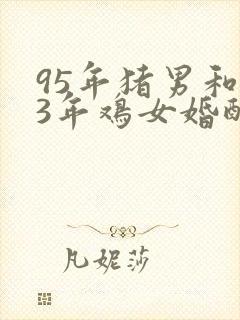 95年猪男和
3年鸡女婚配
凡妮莎